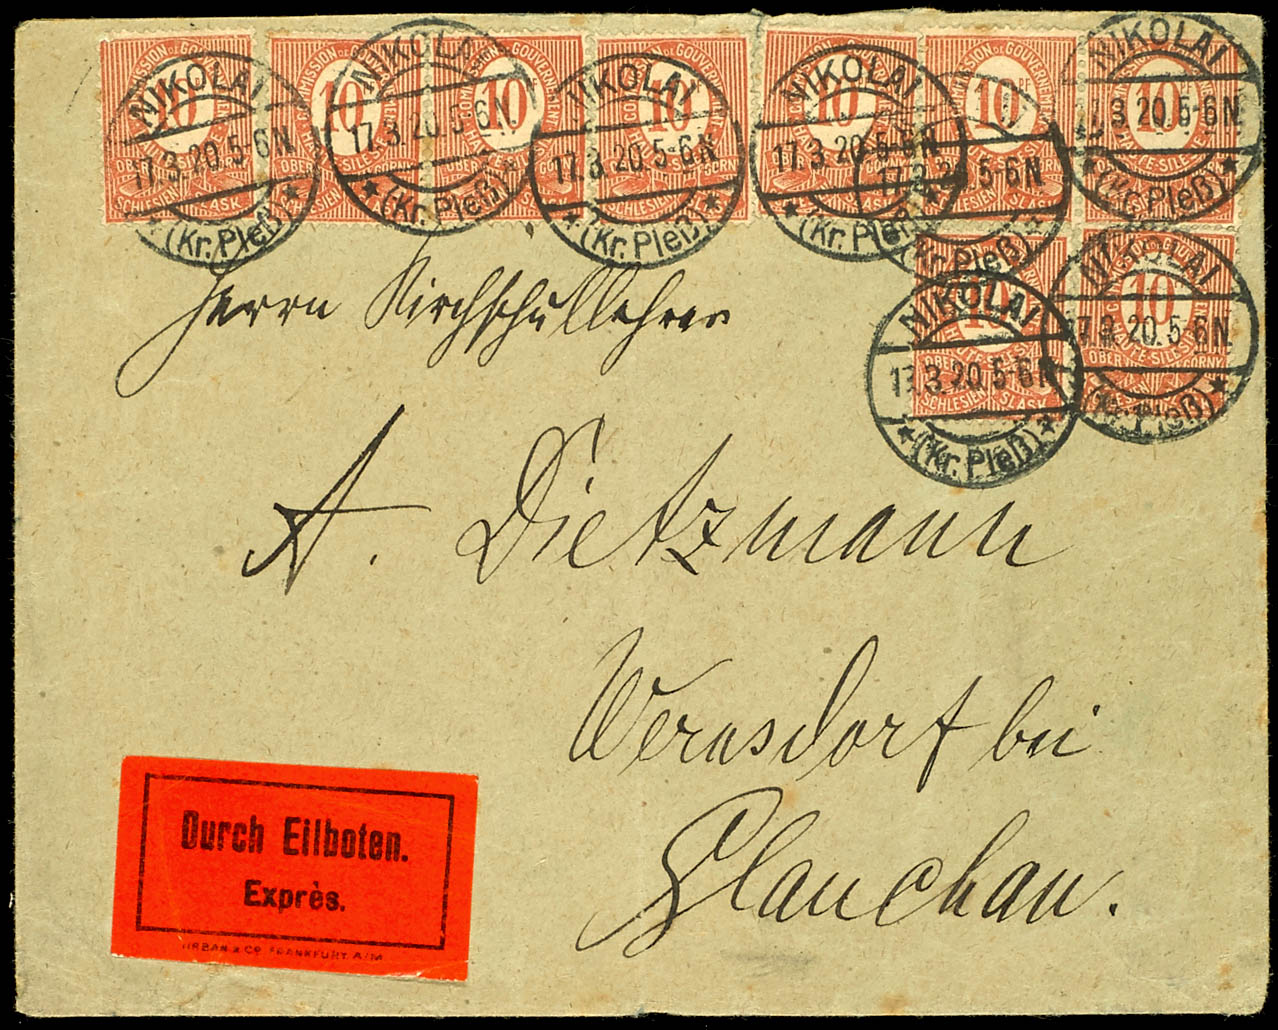 10 10 10 10 10 10 10
COMMISSION DE GOUVERNEMENT
HAUTE SILESIE
OBER SCHLESIEN GORNY SLASK
NIKOLAI NIKOLAI NIKOLAI NIKOLAI NIKOLAI
17.3.20.5-6N 17.3.20.5-6N 17.3.20.5-6N 17.3.20.5-6N 17.3.20.5-6N 17.3.20.5-6N
(Kr. Pleß) (Kr. Pleß) (Kr. Pleß) (Kr. Pleß) (Kr. Pleß) (Kr. Pleß)
10 10
NIKOLAI NIKOLAI
17.3.20.5-6N 17.3.20.5-6N
(Kr. Pleß) (Kr. Pleß)
Herrn Kirchschullehrer
A. Dietzmann
Wernsdorf bei
Glauchau.
Durch Eilboten.
Exprès.
URBAN & CO. FRANKFURT A/M